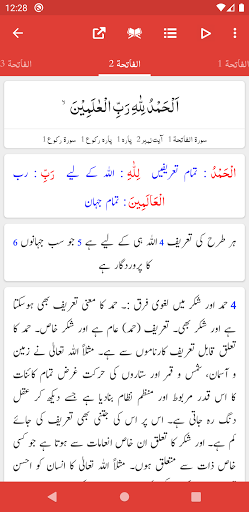 12:28
الفاتحة 3
الفاتحة 2
الفاتحة 1
اَلۡحَمۡدُ لِلّٰهِ رَبِّ الۡعٰلَمِيۡنَ ۙ
سورۃ الفاتحة 1 آیت نمبر 2 پارہ 1 پارہ رکوع 1 سورۃ رکوع 1
الْحَمْدُ : تمام تعریفیں لِلّٰهِ : اللہ کے لیے رَبِّ : رب
الْعَالَمِينَ : تمام جہان
ہر طرح کی تعریف 4 اللہ ہی کے لیے ہے 5 جو سب جہانوں 6
کا پروردگار ہے
4 حمد اور شکر میں لغوی فرق :۔ حمد کا معنی تعریف بھی ہوسکتا
ہے اور شکر بھی۔ تعریف (حمد) عام ہے اور شکر خاص۔ حمد کا
تعلق قابل تعریف کارناموں سے ہے۔ مثلاً اللہ تعالیٰ نے زمین
و آسمان، شمس و قمر اور ستاروں کی حرکت غرض تمام کائنات
کا اس قدر مربوط اور منظم نظام بنادیا ہے جسے دیکھ کر عقل
دنگ رہ جاتی ہے۔ اس پر اس کی جتنی بھی تعریف کی جائے
کم ہے۔ اور شکر کا تعلق ان خاص انعامات سے ہوتا ہے جو کسی
خاص ذات سے متعلق ہوں۔ مثلاً اللہ تعالیٰ کا انسان کو احسن